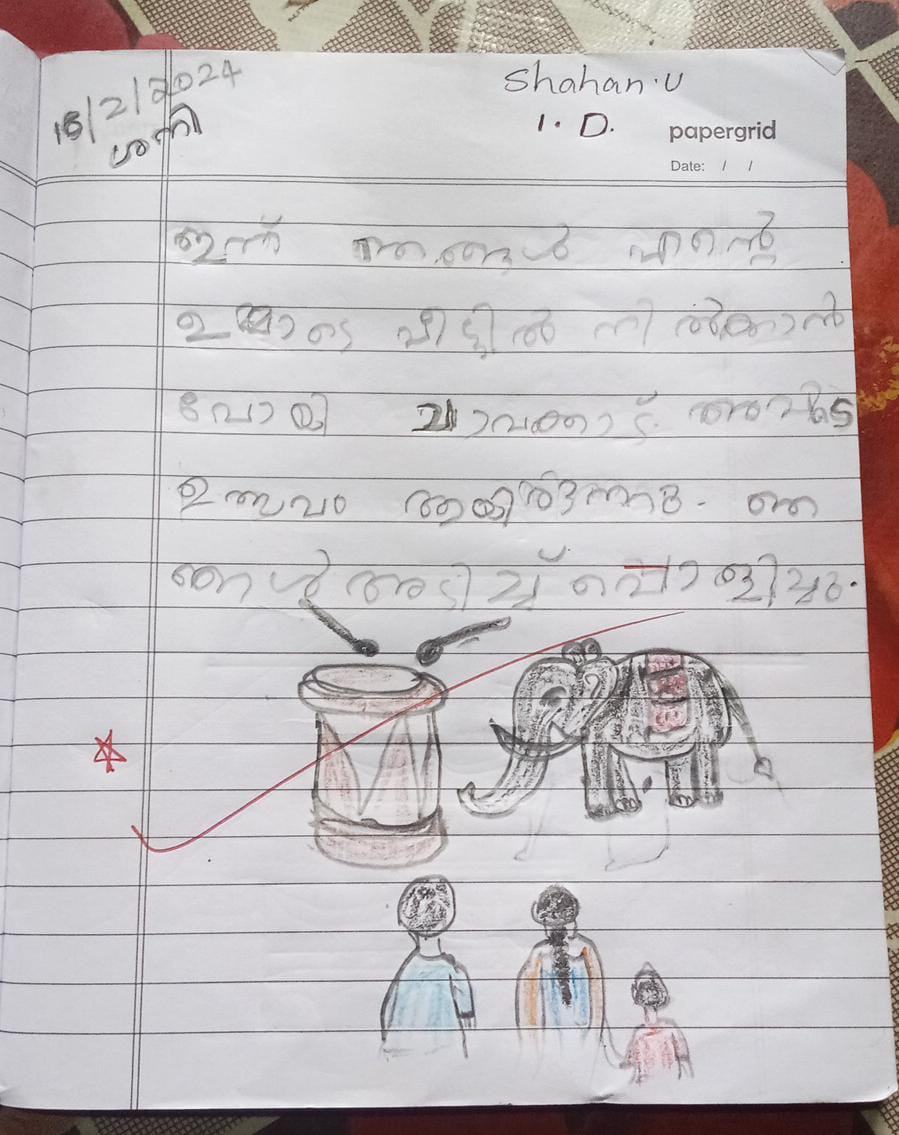 18/2/2024
ശനി
Shahan.U
1. D.
papergrid
Date: / /
ഇന്ന് ഞങ്ങൾ എന്റെ
ഉമ്മാടെ വീട്ടിൽ നിൽക്കാൻ
പോയി ചാവക്കാട് അവിടെ
ഉത്സവം ആയിരുന്നു. ഞ
ങ്ങൾ അടിച്ച് പൊളിച്ചു.